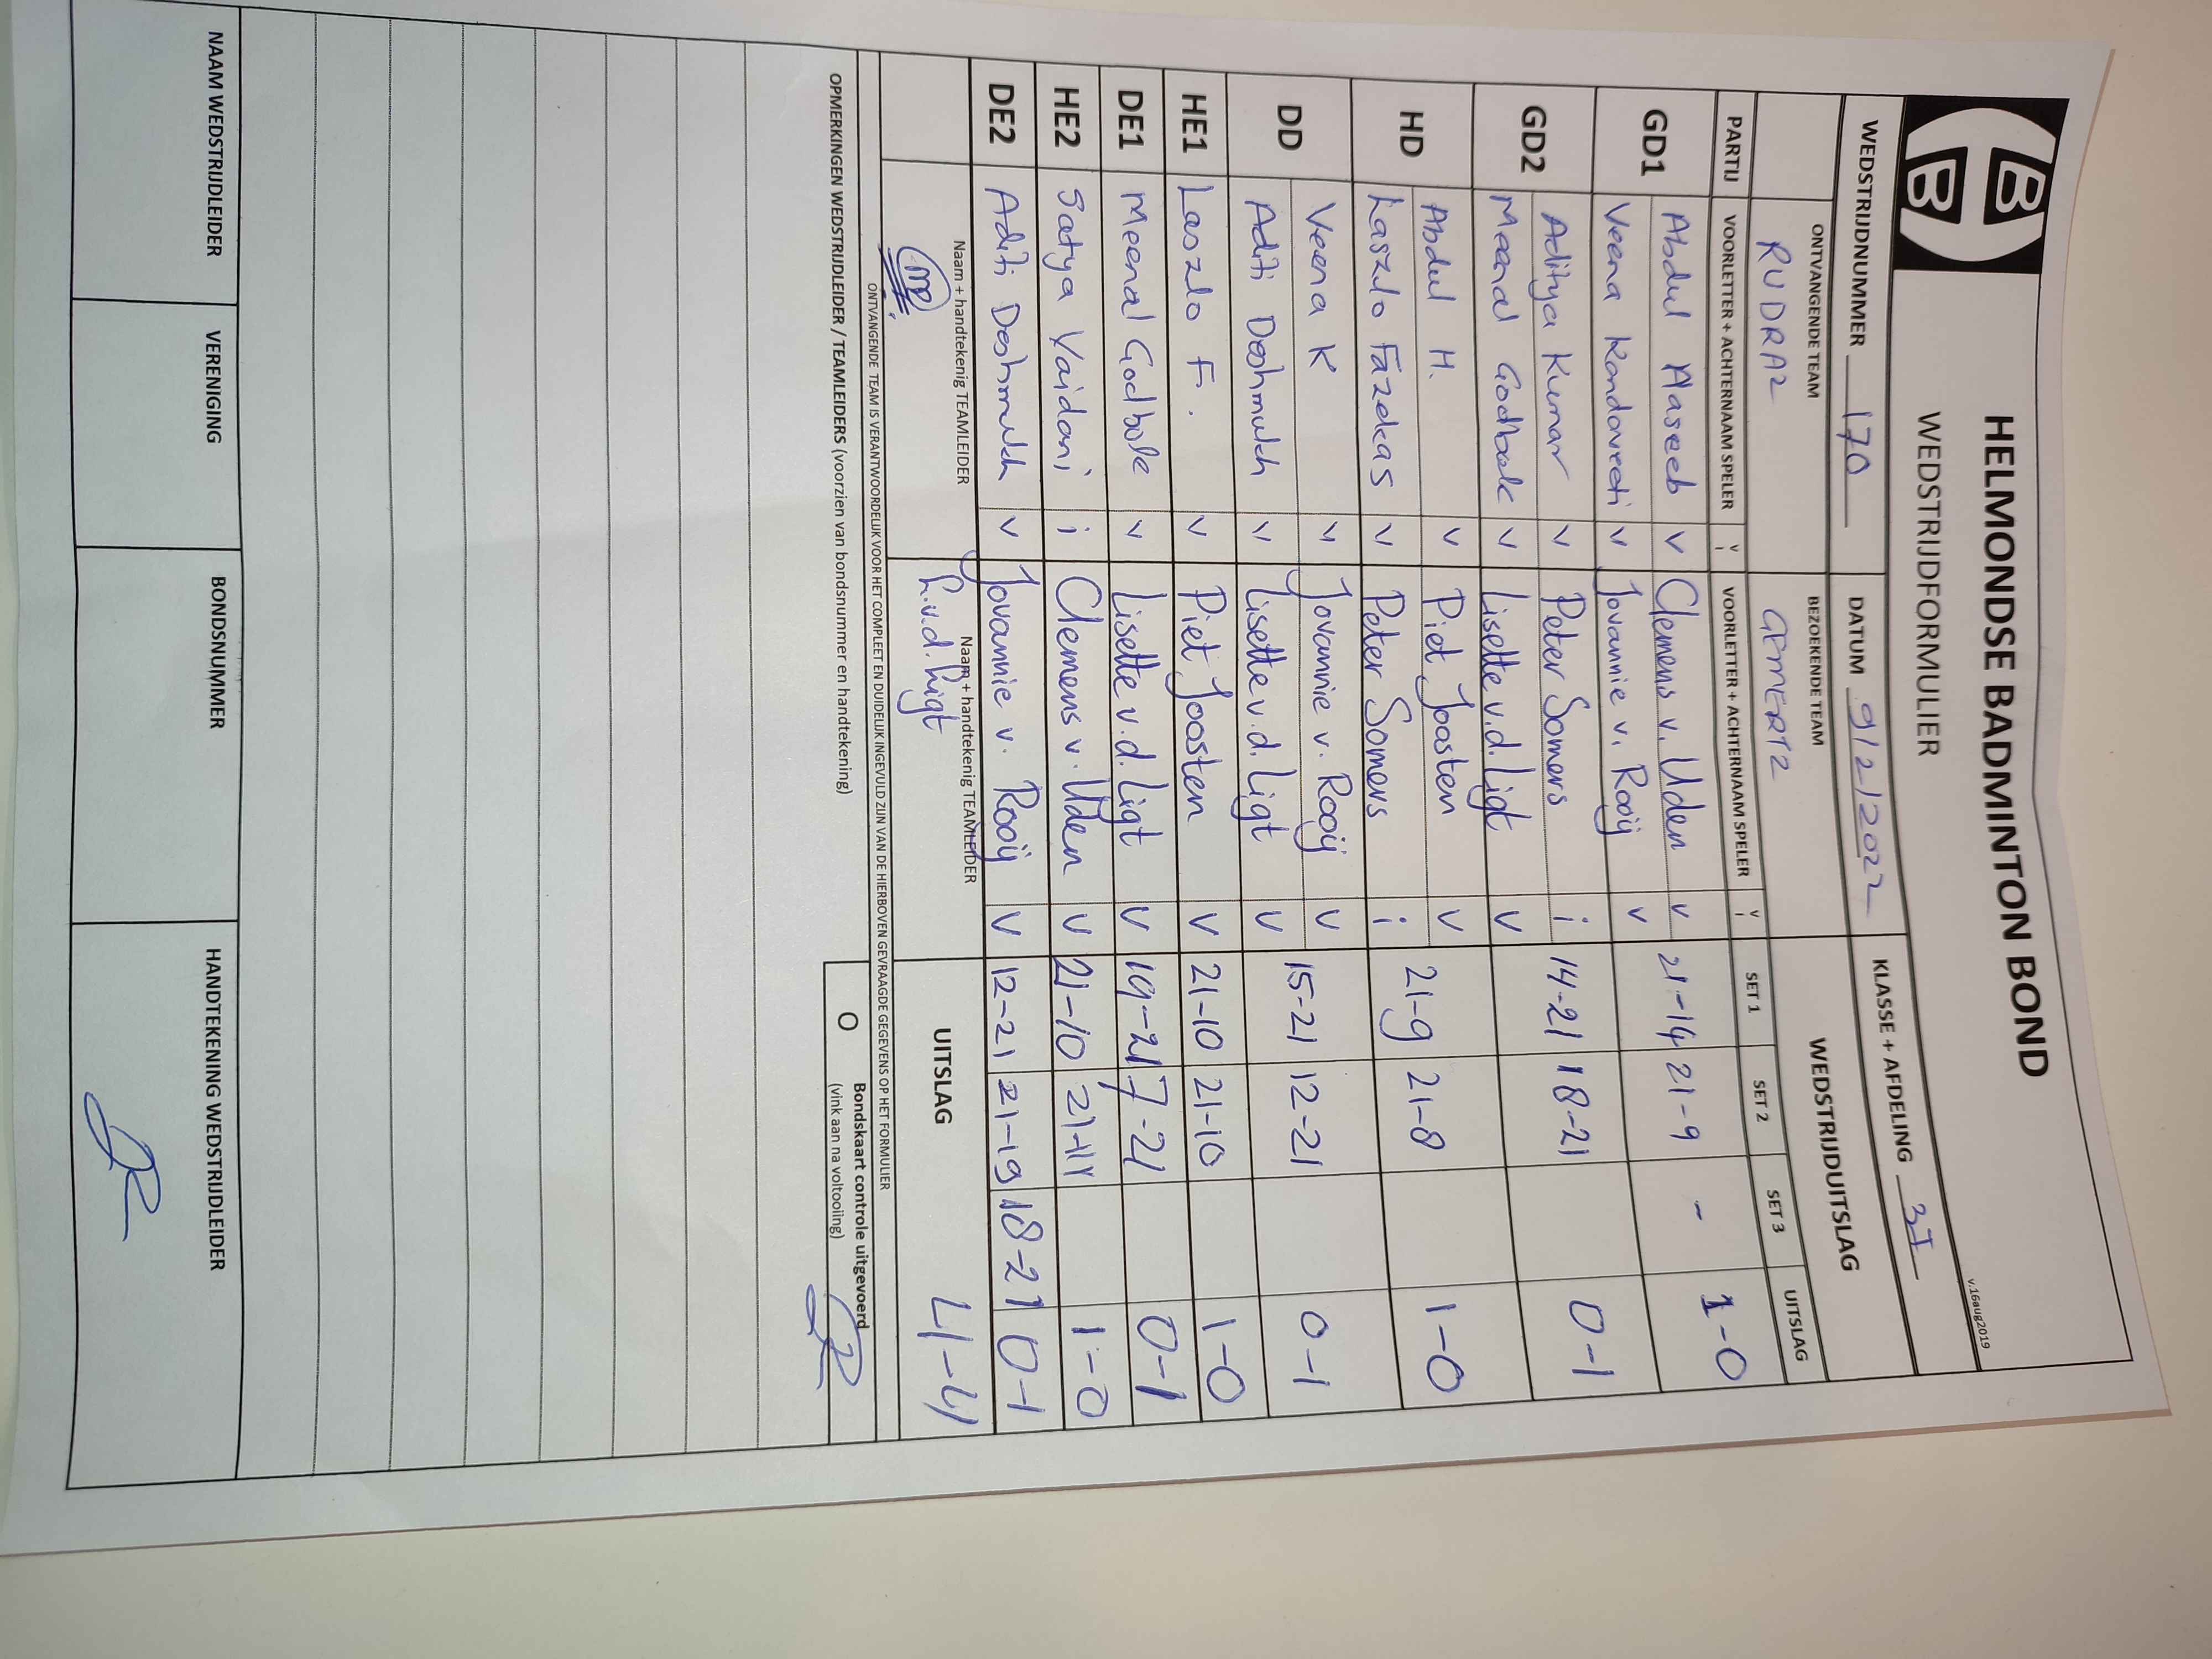 HELMONDSE BADMINTON BOND
WEDSTRIJDFORMULIER
v.16aug2019
WEDSTRIJDNUMMER 170 DATUM 9/2/2022 KLASSE + AFDELING 3I
ONTVANGENDE TEAM BEZOEKENDE TEAM WEDSTRIJDUITSLAG
RUDRA2 GEMERT2
PARTIJ VOORLETTER + ACHTERNAAM SPELER v i VOORLETTER + ACHTERNAAM SPELER v i SET 1 SET 2 SET 3 UITSLAG
GD1 Abdul Haseeb v Clemens v. Uden v 21-14 21-9 - 1-0
Veena Kondaveeti v Jovannie v. Rooij v
GD2 Aditya Kumar v Peter Somers i 14-21 18-21 0-1
Meenal Godbole v Lisette v.d. Ligt v
HD Abdul H. v Piet Joosten v 21-9 21-8 1-0
Laszlo Fazekas v Peter Somers i
DD Veena K v Jovannie v. Rooij v 15-21 12-21 0-1
Aditi Deshmukh v Lisette v.d. Ligt v
HE1 Laszlo F. v Piet Joosten v 21-10 21-10 1-0
DE1 Meenal Godbole v Lisette v.d. Ligt v 19-21 7-21 0-1
HE2 Satya Vaidani i Clemens v. Uden v 21-10 21-11 1-0
DE2 Aditi Deshmukh v Jovannie v. Rooij v 12-21 21-19 18-21 0-1
Naam + handtekenig TEAMLEIDER Naam + handtekenig TEAMLEIDER UITSLAG 4-4
L.v.d. Ligt
ONTVANGENDE TEAM IS VERANTWOORDELIJK VOOR HET COMPLEET EN DUIDELIJK INGEVULD ZIJN VAN DE HIERBOVEN GEVRAAGDE GEGEVENS OP HET FORMULIER
OPMERKINGEN WEDSTRIJDLEIDER / TEAMLEIDERS (voorzien van bondsnummer en handtekening)
O Bondskaart controle uitgevoerd
(vink aan na voltooiing)
NAAM WEDSTRIJDLEIDER VERENIGING BONDSNUMMER HANDTEKENING WEDSTRIJDLEIDER